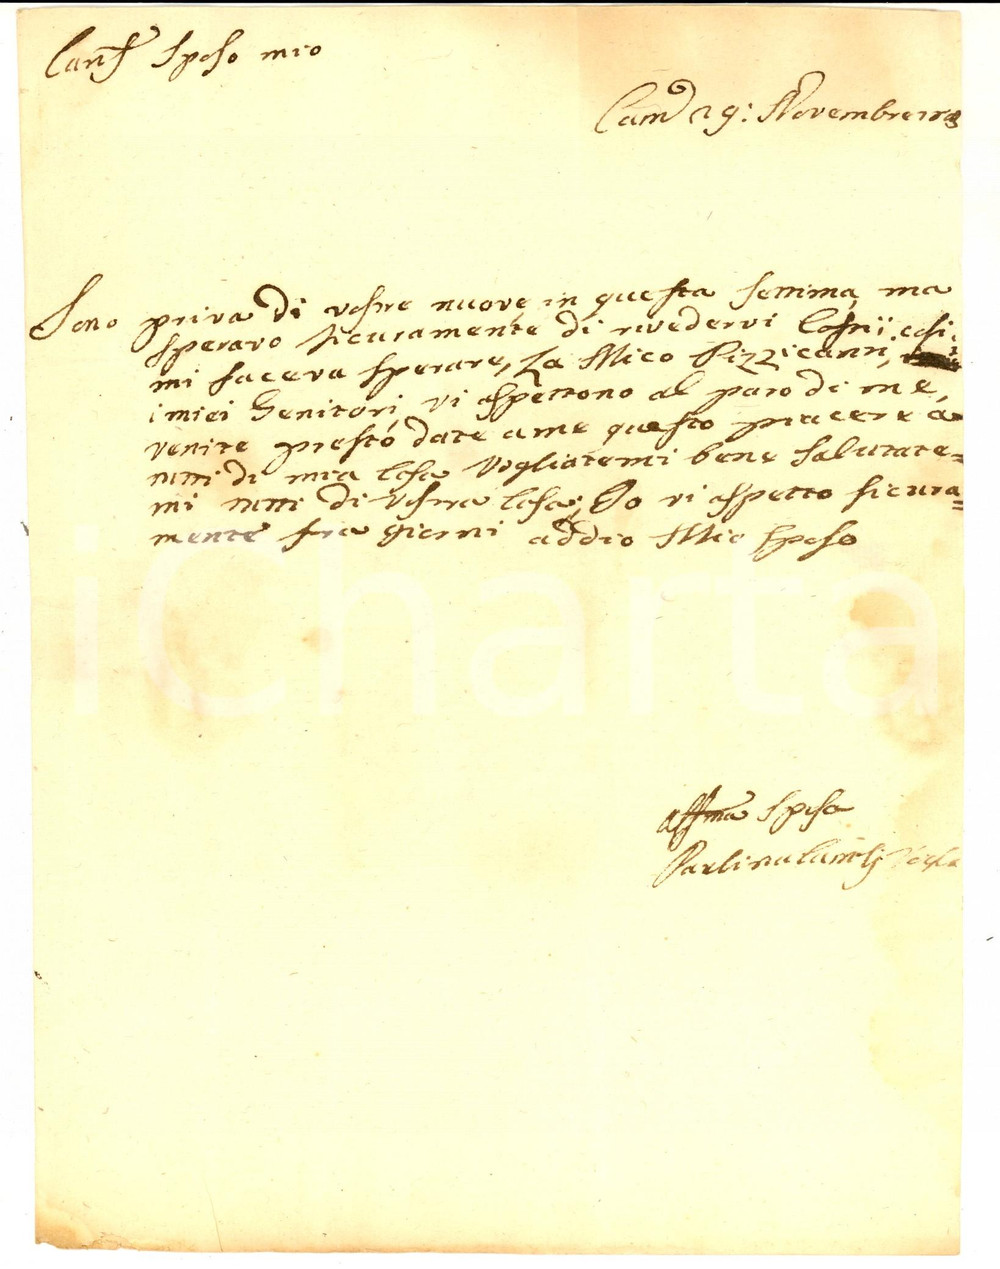 Caris.º Sposo mio
Cam.º 29: Novembre
Sono priva di vostre nuove in questa settima, ma
speravo sicuramente di rivedervi Costì, così
mi faceva sperare, Za Mico Pizzicanti,
i miei Genitori, vi aspettono al paro di me,
venite presto date a me questo piacere a
tutti di mia Casa Vogliatemi bene Salutate=
mi tutti di Vostra Casa, Io vi aspetto sicura=
mente fra giorni addio Mio Sposo
affma Sposa
Paolina
iCharta